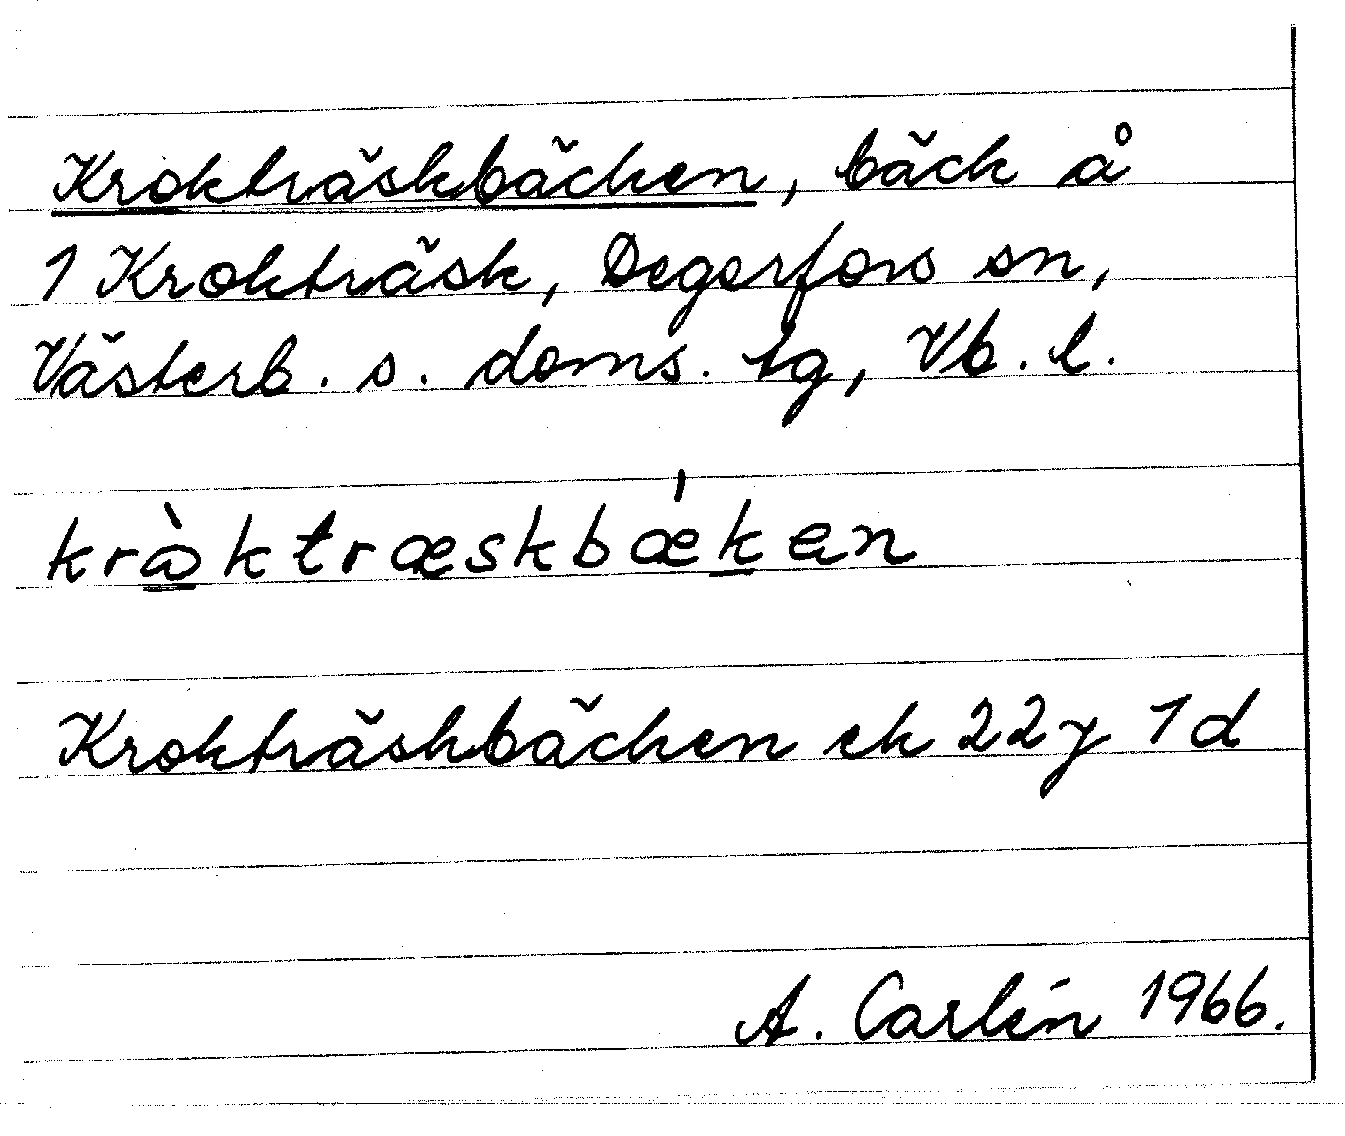 Krokträskbäcken, bäck å
1 Krokträsk, Degerfors sn,
Västerb. s. doms. tg, Vb. l.
kràktræskbǽken
Krokträskbäcken ek 22y 1d
A. Carlén 1966.